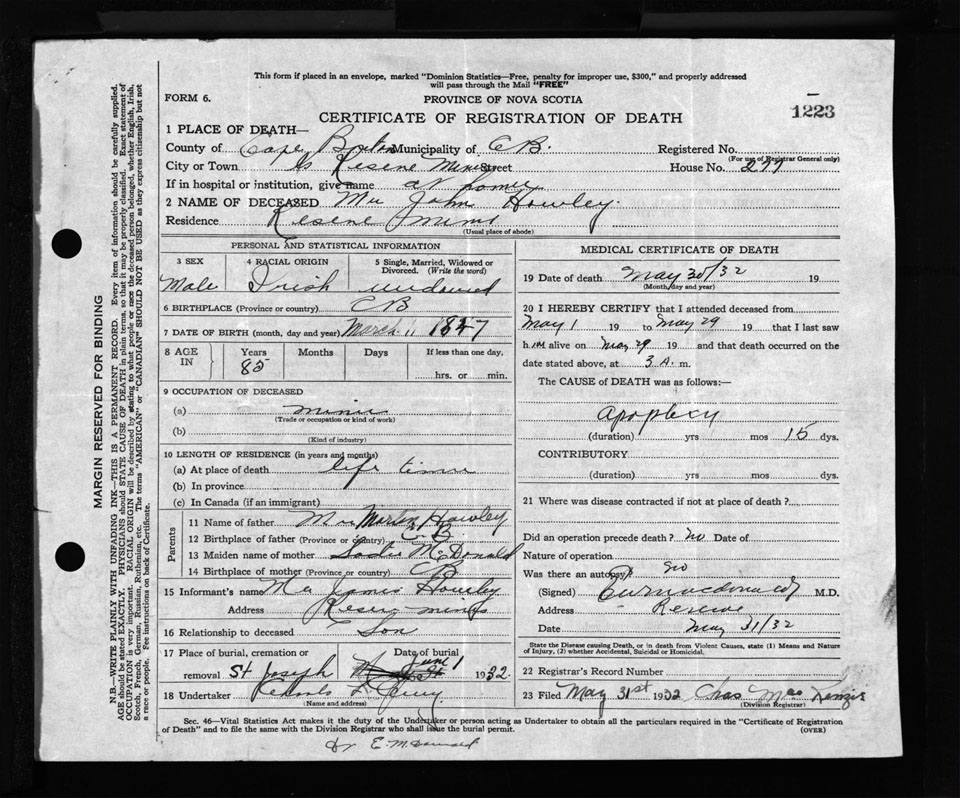 This form if placed in an envelope, marked "Dominion Statistics—Free, penalty for improper use, $300," and properly addressed
will pass through the Mail "FREE"
FORM 6.
PROVINCE OF NOVA SCOTIA
1223
CERTIFICATE OF REGISTRATION OF DEATH
1 PLACE OF DEATH—
County of Cape Breton Municipality of C B. Registered No.
(For use of Registrar General only)
City or Town Reserve Mines Street House No. 277
If in hospital or institution, give name at home
2 NAME OF DECEASED Mr John Howley.
Residence Reserve Mines
(Usual place of abode)
PERSONAL AND STATISTICAL INFORMATION
3 SEX 4 RACIAL ORIGIN 5 Single, Married, Widowed or Divorced. (Write the word)
Male Irish widowed
6 BIRTHPLACE (Province or country) C B
7 DATE OF BIRTH (month, day and year) March 11 1847
8 AGE IN Years Months Days If less than one day.
85 hrs. or min.
9 OCCUPATION OF DECEASED
(a) miner
(Trade or occupation or kind of work)
(b)
(Kind of industry)
10 LENGTH OF RESIDENCE (in years and months)
(a) At place of death life time
(b) In province
(c) In Canada (if an immigrant)
Parents
11 Name of father Mr Martin Howley
12 Birthplace of father (Province or country) C B
13 Maiden name of mother McDonald
14 Birthplace of mother (Province or country) CB
15 Informant's name Mr James Howley
Address Reserve mines
16 Relationship to deceased Son
17 Place of burial, cremation or removal St Joseph Date of burial June 1 1932.
18 Undertaker
(Name and address)
MEDICAL CERTIFICATE OF DEATH
19 Date of death May 30/32 19
(Month, day and year)
20 I HEREBY CERTIFY that I attended deceased from
May 1 19 to May 29 19 that I last saw
h im alive on May 29 19 and that death occurred on the
date stated above, at 3 A. m.
The CAUSE OF DEATH was as follows:
Apoplexy
(duration) yrs mos 15 dys.
CONTRIBUTORY
(duration) yrs. mos. dys.
21 Where was disease contracted if not at place of death?
Did an operation precede death? no Date of
Nature of operation
Was there an autopsy? no
(Signed) M.D.
Address Reserve
Date May 31/32
State the Disease causing Death, or in death from Violent Causes, state (1) Means and Nature of Injury, (2) whether Accidental, Suicidal or Homicidal.
22 Registrar's Record Number
23 Filed May 31st 1932 Chas MacKenzie
(Division Registrar)
Sec. 46—Vital Statistics Act makes it the duty of the Undertaker or person acting as Undertaker to obtain all the particulars required in the "Certificate of Registration
of Death" and to file the same with the Division Registrar who shall issue the burial permit.
(OVER)
Dr E. McDonald
MARGIN RESERVED FOR BINDING
N.B.—WRITE PLAINLY WITH UNFADING INK—THIS IS A PERMANENT RECORD. Every item of information should be carefully supplied.
AGE should be stated EXACTLY. PHYSICIANS should STATE CAUSE OF DEATH in plain terms, so that it may be properly classified. Exact statement of
OCCUPATION is very important. RACIAL ORIGIN will be described by stating to what people or race the deceased person belonged, whether English, Irish,
Scotch, French, German, Russian, Ruthenian, etc. The terms "AMERICAN" or "CANADIAN" SHOULD NOT BE USED as they express citizenship but not
a race or people. See instructions on back of Certificate.